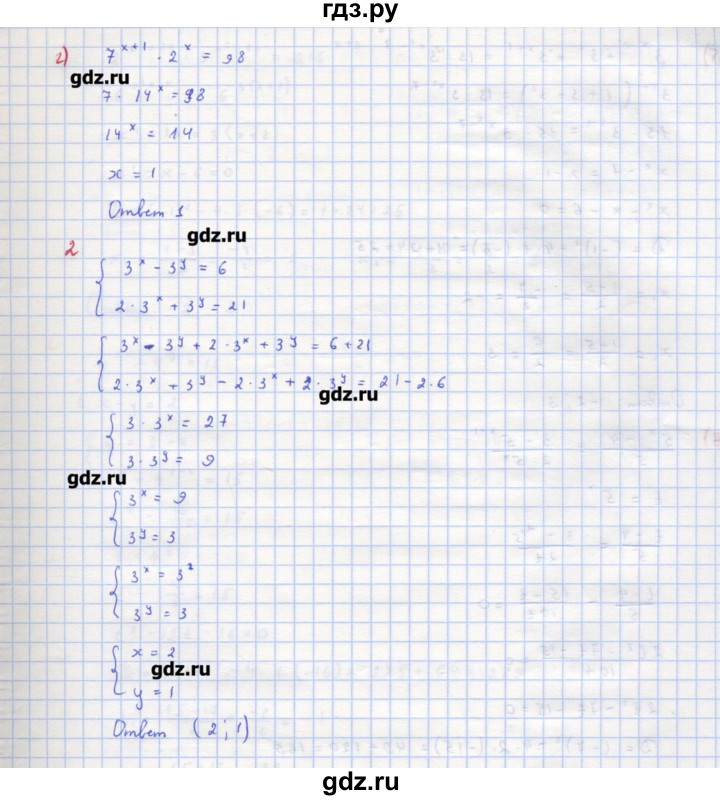 гдз.ру
г) 7^(x+1) · 2^x = 98
gdz.ru
7 · 14^x = 98
14^x = 14
x = 1
Ответ 1
gdz.ru
2
{ 3^x - 3^y = 6
2 · 3^x + 3^y = 21
{ 3^x - 3^y + 2 · 3^x + 3^y = 6 + 21
2 · 3^x + 3^y - 2 · 3^x + 2 · 3^y = 21 - 2 · 6
gdz.ru
{ 3 · 3^x = 27
3 · 3^y = 9
gdz.ru
{ 3^x = 9
3^y = 3
{ 3^x = 3^2
3^y = 3
{ x = 2
gdz.ru
y = 1
Ответ (2; 1)
gdz.ru